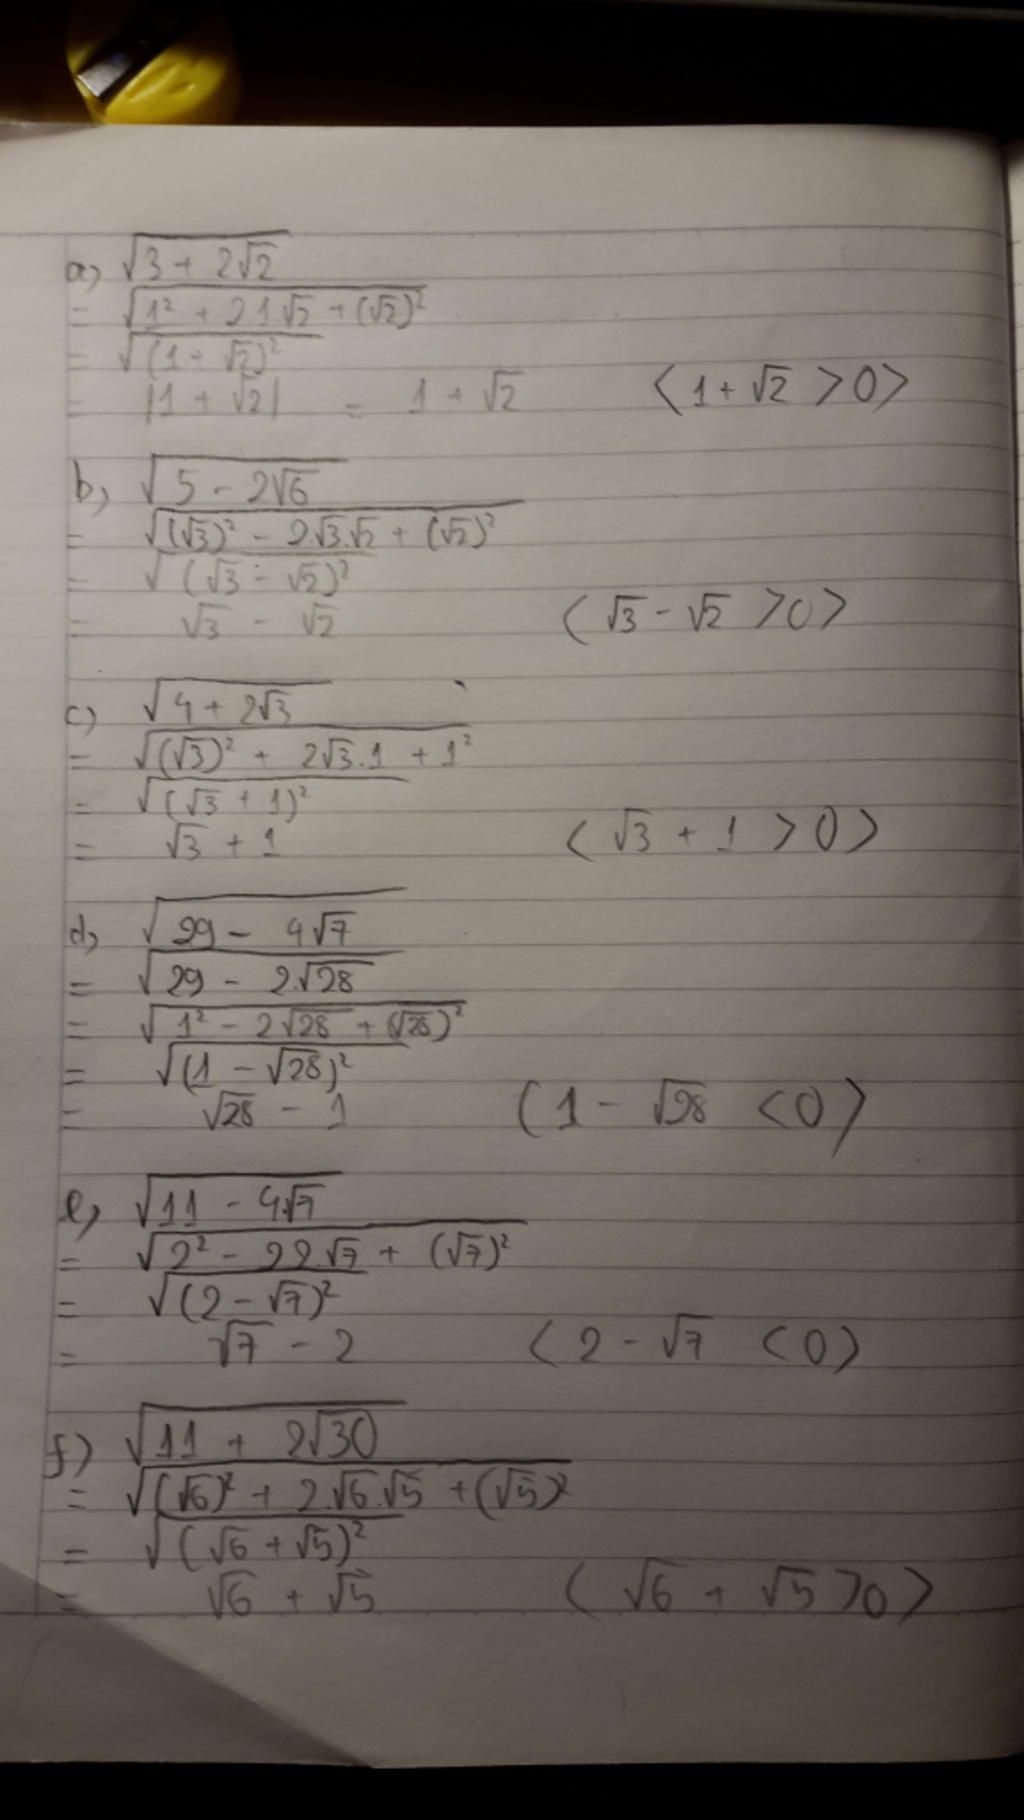 a) √(3 + 2√2)
= √(1² + 2 1 √2 + (√2)²)
= √((1 + √2)²)
= |1 + √2| = 1 + √2 <1 + √2 > 0>
b) √(5 - 2√6)
= √((√3)² - 2.√3.√2 + (√2)²)
= √((√3 - √2)²)
= √3 - √2 (√3 - √2 > 0>
c) √(4 + 2√3)
= √((√3)² + 2√3.1 + 1²)
= √((√3 + 1)²)
= √3 + 1 <√3 + 1 > 0>
d) √(29 - 4√7)
= √(29 - 2.√28)
= √(1² - 2√28 + (√28)²)
= √((1 - √28)²)
= √28 - 1 (1 - √28 < 0)
e) √(11 - 4√7)
= √(2² - 2 2.√7 + (√7)²)
= √((2 - √7)²)
= √7 - 2 <2 - √7 < 0>
f) √(11 + 2√30)
= √((√6)² + 2.√6.√5 + (√5)²)
= √((√6 + √5)²)
= √6 + √5 <√6 + √5 > 0>